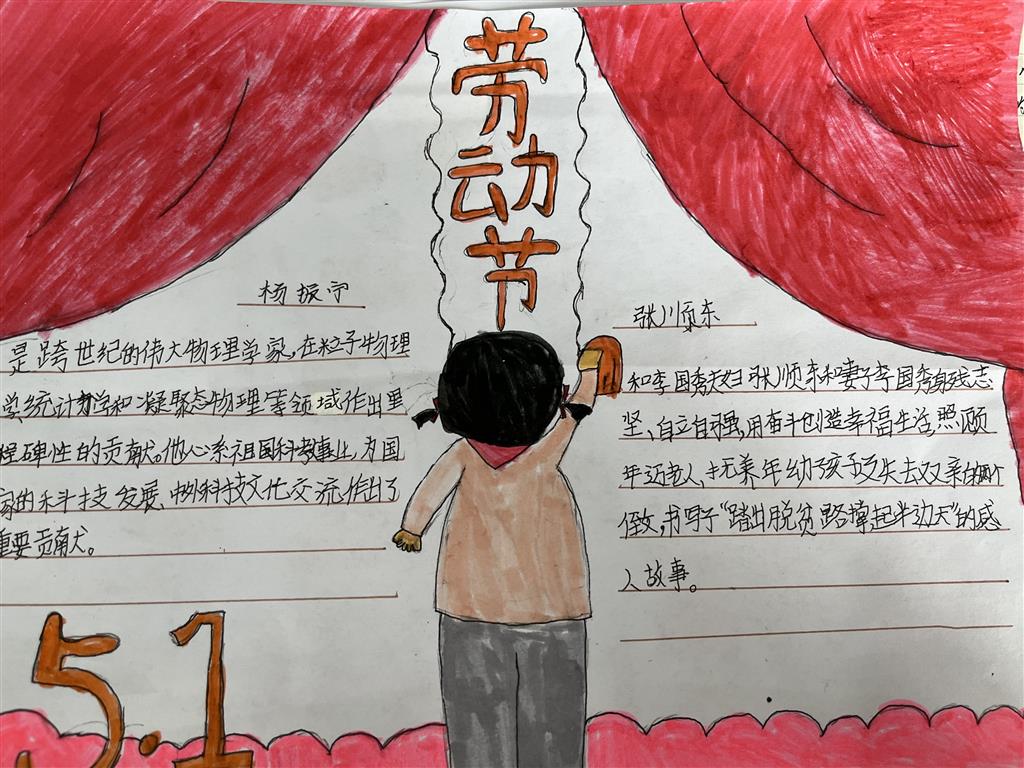 劳动节
杨振宁
是跨世纪的伟大物理学家,在粒子物理
学统计力学和凝聚态物理等领域作出里
程碑性的贡献。他心系祖国科教事业,为国
家的科技发展、中外科技文化交流作出了
重要贡献。
5.1
张顺东
和李国秀夫妇张顺东和妻子李国秀身残志
坚、自立自强,用奋斗创造幸福生活,照顾
年迈老人,扶养年幼孩子及失去双亲的两个
侄女,书写了“踏出脱贫路撑起半边天”的感
人故事。